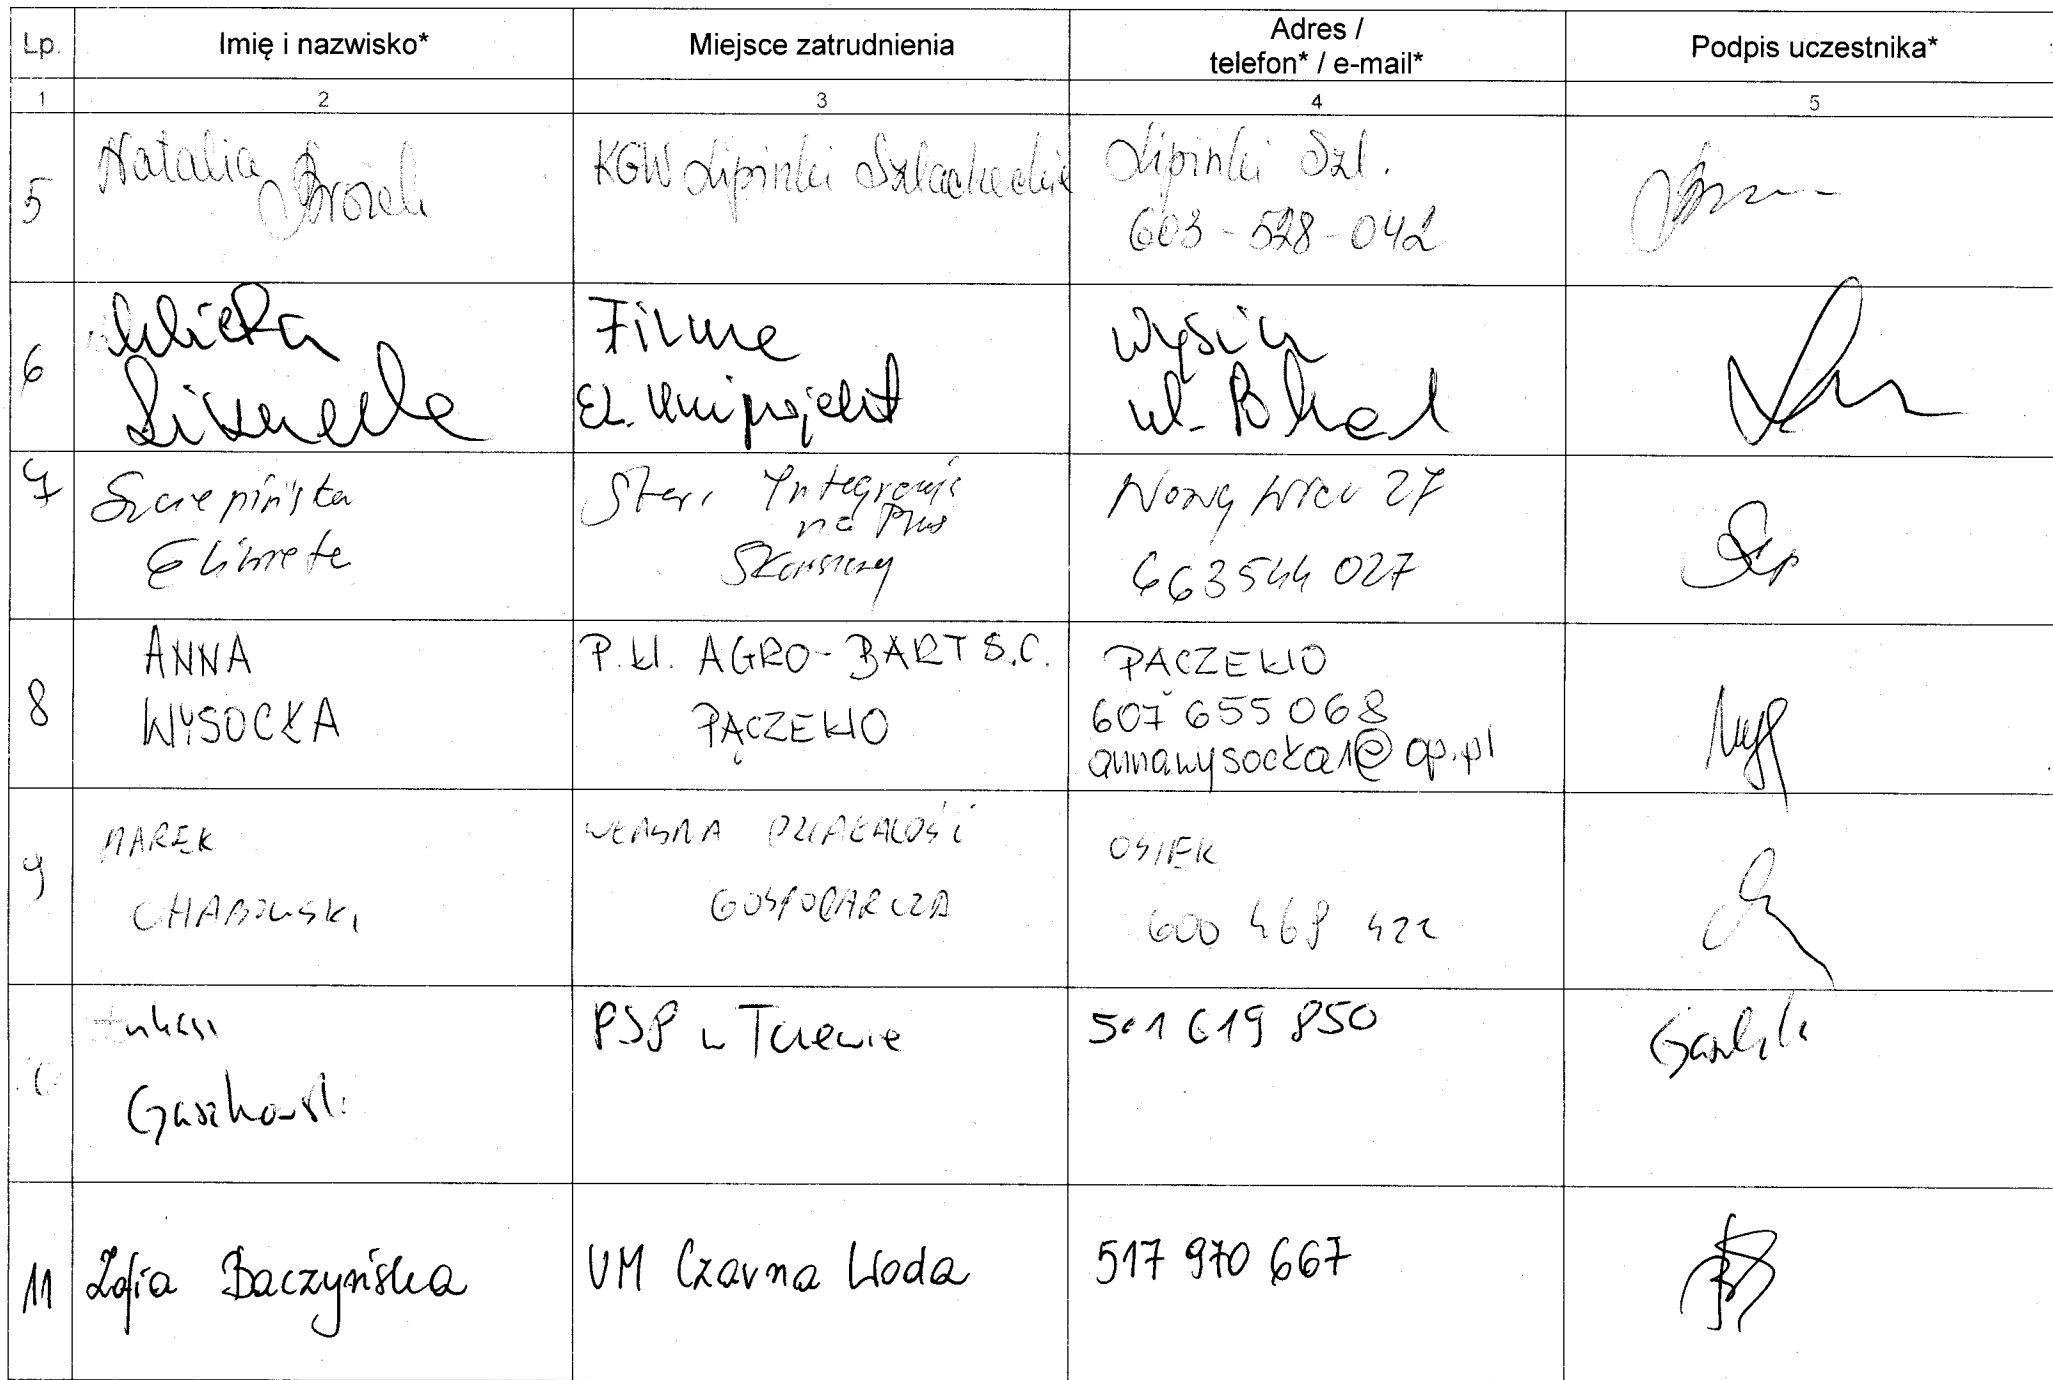 Lp.
Imię i nazwisko*
Miejsce zatrudnienia
Adres /
telefon* / e-mail*
Podpis uczestnika*
1
2
3
4
5
5
Natalia
KGW Lipinki Szlacheckie
Lipinki Szl.
603-528-042
6
Firma
ul.
7
Szczepińska
Elżbieta
Stow. Integracja
na Plus
Skórczy
Nowy Wiec 27
663544 027
8
ANNA
WYSOCKA
P.W. AGRO-BART S.C.
PĄCZEWO
PACZEWO
607 655 068
annawysocka1@op.pl
9
MAREK
WŁASNA DZIAŁALOŚĆ
GOSPODARCZA
OSIEK
600 468 422
Łukasz
Gaszkowski
PSP w Tczewie
501 619 850
11
Zofia Baczyńska
UM Czarna Woda
517 970 667